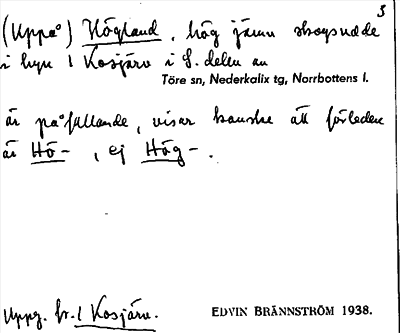 3
(Uppå) Högland, hög jämn skogsudde
i byn l Kosjärv i S. delen av
Töre sn, Nederkalix tg, Norrbottens l.
är påfallande, visar kanske att förleden
är Hö-, ej Hög-.
Uppg. fr. l Kosjärv.
EDVIN BRÄNNSTRÖM 1938.